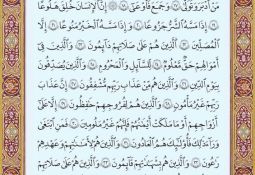 مَنْ أَدْبَرَ وَتَوَلَّىٰ ١٧ وَجَمَعَ فَأَوْعَىٰ ١٨ ۞ إِنَّ الْإِنسَانَ خُلِقَ هَلُوعًا
١٩ إِذَا مَسَّهُ الشَّرُّ جَزُوعًا ٢٠ وَإِذَا مَسَّهُ الْخَيْرُ مَنُوعًا ٢١ إِلَّا
الْمُصَلِّينَ ٢٢ الَّذِينَ هُمْ عَلَىٰ صَلَاتِهِمْ دَائِمُونَ ٢٣ وَالَّذِينَ فِي
أَمْوَالِهِمْ حَقٌّ مَّعْلُومٌ ٢٤ لِّلسَّائِلِ وَالْمَحْرُومِ ٢٥ وَالَّذِينَ يُصَدِّقُونَ
بِيَوْمِ الدِّينِ ٢٦ وَالَّذِينَ هُم مِّنْ عَذَابِ رَبِّهِم مُّشْفِقُونَ ٢٧ إِنَّ عَذَابَ
رَبِّهِمْ غَيْرُ مَأْمُونٍ ٢٨ وَالَّذِينَ هُمْ لِفُرُوجِهِمْ حَافِظُونَ ٢٩ إِلَّا عَلَىٰ
أَزْوَاجِهِمْ أَوْ مَا مَلَكَتْ أَيْمَانُهُمْ فَإِنَّهُمْ غَيْرُ مَلُومِينَ ٣٠ فَمَنِ ابْتَغَىٰ
وَرَاءَ ذَٰلِكَ فَأُولَٰئِكَ هُمُ الْعَادُونَ ٣١ وَالَّذِينَ هُمْ لِأَمَانَاتِهِمْ وَعَهْدِهِمْ
رَاعُونَ ٣٢ وَالَّذِينَ هُم بِشَهَادَاتِهِمْ قَائِمُونَ ٣٣ وَالَّذِينَ هُمْ عَلَىٰ صَلَاتِهِمْ